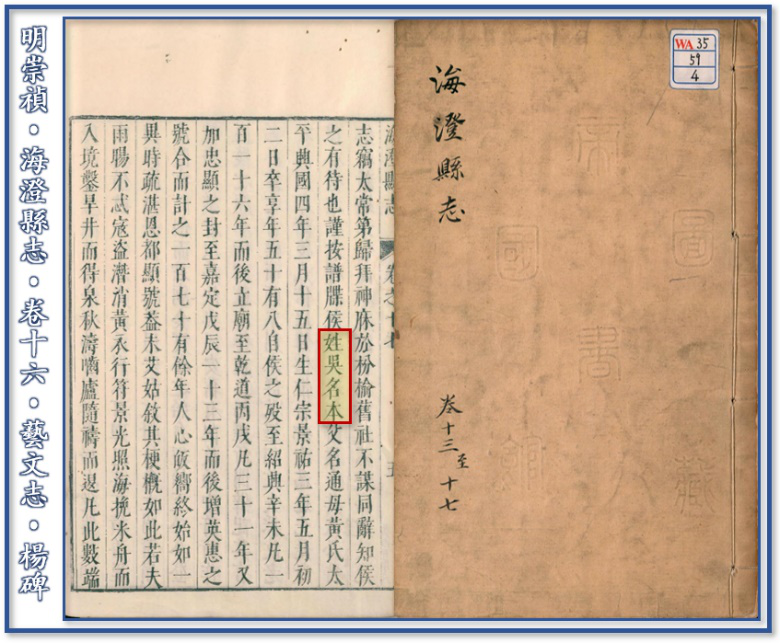 明崇禎・海澄縣志・卷十六・藝文志・楊碑
WA 35
59
4
海澄縣志
卷十三至十七
海澄縣志 卷之十七
志竊太常第歸拜神庥於枌榆舊社不謀同辭知侯
之有待也謹按譜牒侯姓吳名本父名通母黃氏太
平興國四年三月十五日生仁宗景祐三年五月初
二日卒享年五十有八自侯之歿至紹興辛未凡一
百一十六年而後立廟至乾道丙戌凡三十一年又
加忠顯之封至嘉定戊辰一十三年而後增英惠之
號合而計之一百七十有餘年人心皈嚮終始如一
異時疏湛恩都顯號蓋未艾姑敘其梗概如此若夫
雨暘不忒寇盜潛消黃衣行符景光照海挽米舟而
入境鑿旱井而得泉秋濤嚙廬隨禱而退凡此數端